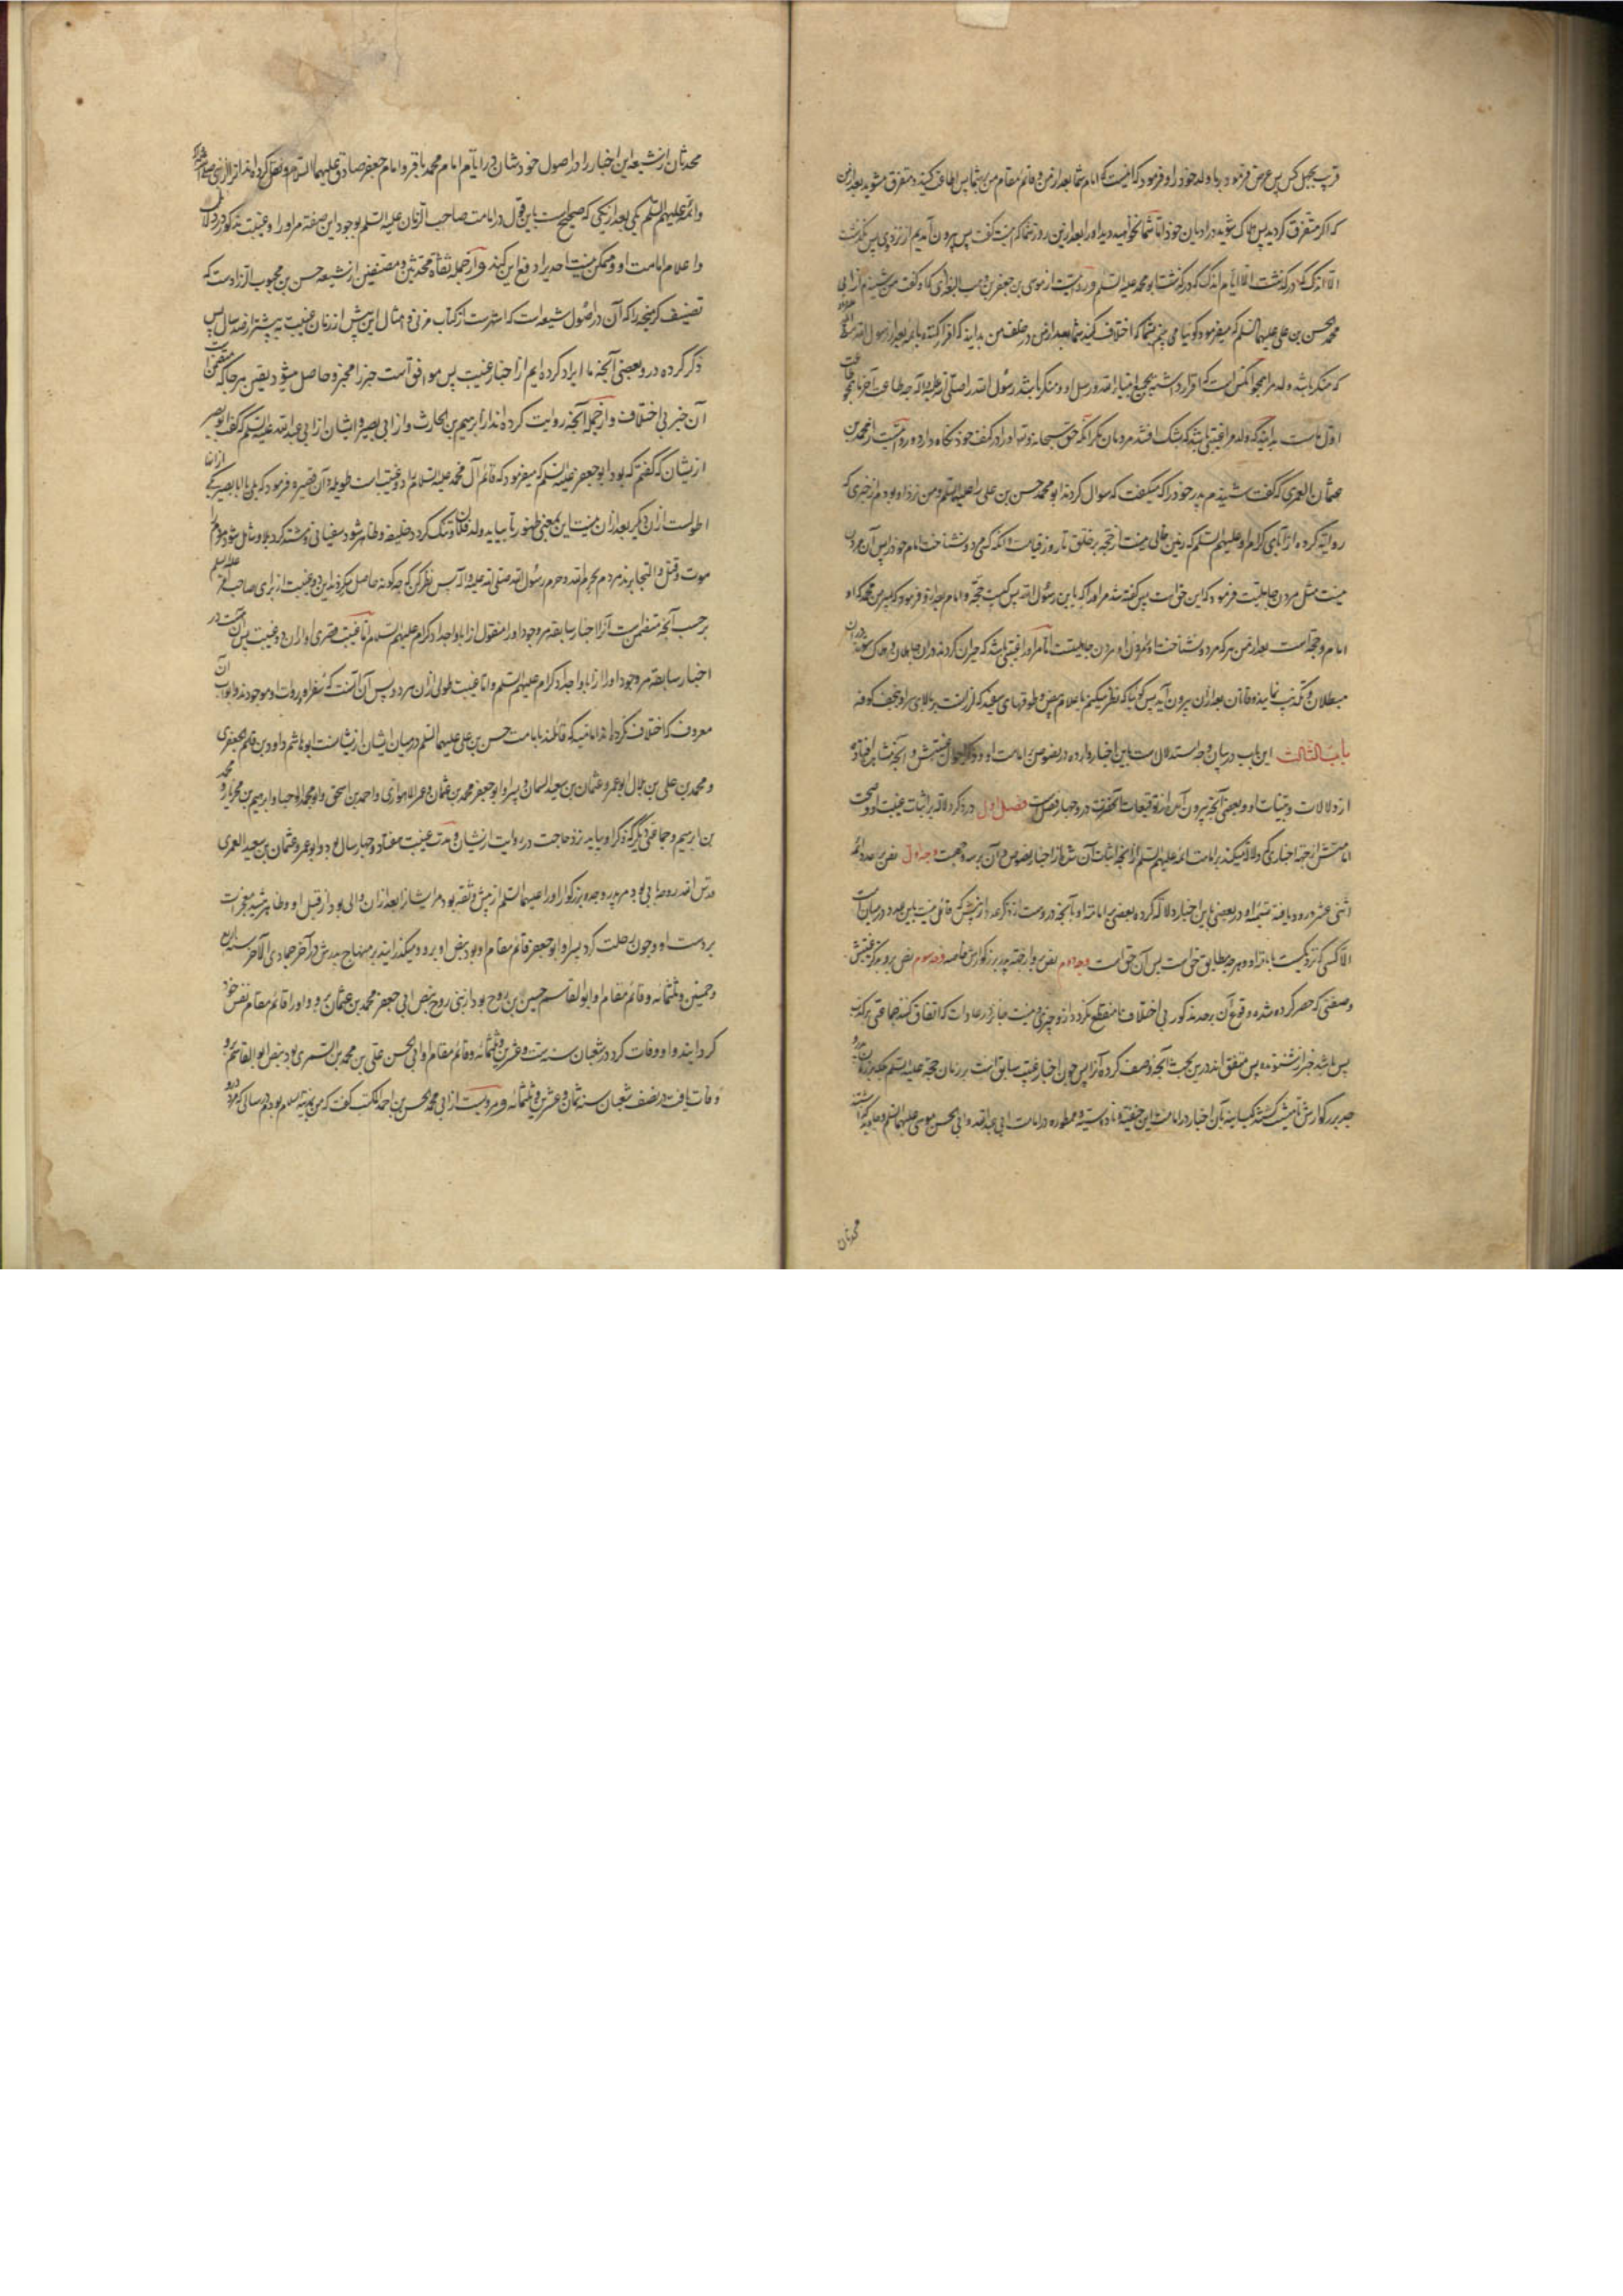 قریب بچهل کس پس عرض فرمود بر ما ولد خود را و فرمود که اینست امام شما بعد از من و قائم مقام من بر شما پس اطاعت کنید و متفرق مشوید بعد از من
که اگر متفرق گردید پس هلاک شوید در ادیان خود اما شما نخواهید دید او را بعد ازین روز شما که هست گفت پس بیرون آمدیم از نزد وی پس نگذشت
الا اندک که درگذشت ابو محمد علیه السلم و روایتست از موسی بن جعفر بن وهب البغدادی که او گفت من شنیدم از ابی
محمد حسن بن علی علیهما السلم که میفرمود گوئیا می بینم شما که اختلاف کنید شما بعد از من در خلف من بدانید که اقرار کننده بائمه بعد از رسول الله صلی الله علیه و آله
که منکر باشد ولد مرا همچو آنکس است که اقرار داشته بجمیع انبیاء الله و رسل او و منکر باشد رسول الله را صلی الله علیه و آله چه طاعت آخر ما همچو طاعت
اول ماست بدانید که ولد مرا غیبتی باشد که بشک افتند مردمان مگر آنکه حق سبحانه و تعالی او را در کنف خود نگاه دارد و روایتست از محمد بن
عثمان العمری که گفت شنیدم پدر خود را که میگفت که سوال کردند ابو محمد حسن بن علی را علیهما السلم و من نزد او بودم از خبری که
روایت کرده اند از آبای کرام او علیهم السلم که زمین خالی نیست از حجة بر خلق تا روز قیامت و آنکه کسی مرد و نشناخت امام خود را پس آن مردن
میت مثل مردن جاهلیت فرمود که این حق است پس گفته شد مر او را که یا بن رسول الله پس کیست حجة و امام بعد از تو فرمود که پسر من محمد که او
امام و حجة است بعد از من هر که مرد و نشناخت او مردن او مردن جاهلیتست اما مر او را غیبتی باشد که حیران گردند در آن جاهلان و هلاک شوند در آن
مبطلان و تکذیب نمایند وقاتان بعد از آن بیرون آید پس گوئیا که نظر میکنم باعلام بیض و طوقهای سفید که لرزانست بر بالای سر او بنجف کوفه
باب الثالث این باب در بیان وجه استدلالست باین اخبار وارده در نصوص بر امامت او و ذکر احوال غیبتش و آنچه مشاهده افتاده
از دلالات و بینات او و بعضی آنچه بیرون آمده از توقیعات آنحضرت در و چهار فصل است فصل اول در ذکر دلالة بر اثبات غیبت او و صحت
امامتش از جهة اخباری که دلالة میکند بر امامت ائمه علیهم السلم از آنچه اثبات آن شد از اخبار نصوص و آن بر سه وجهست وجه اول نص بر عدد ائمه
اثنی عشر ... و در بعضی باین اخبار دلالة کرده بعضی بر امامة او بآنچه در وست از ذکر عدد از پیش که قائلی نیست باین عدد در میان امت
الا کسی که نزدیکست بامامة او و هر چه مطابق حق است پس آن حق است وجه دوم نص بر و از جهة پدر بزرگوارش خاصه وجه سوم نص بر و بذکر غیبتش
و صفتی که حصر کرده شده وقوع آن بر حد مذکور بی اختلاف تا منقطع نگردد از و چیزی و نیست جایز در عادات که اتفاق کنند جماعتی بر کذب
پس باشد خبر از شنونده پس متفق اند درین بحث بآنچه وصف کرده آنرا پس چون اخبار غیبت سابق است بر زمان حجة علیه السلم بلکه بر زمان پدر و
جد بزرگوارش ... بآن اخبار در امامت ابن حنفیه و ناووسیه و ممطوره در امامت ابی عبد الله و ابی الحسن موسی علیهما السلم و جاوید گذاشته
محدثان
محدثان از شیعه این اخبار را در اصول خودشان در ایام امام محمد باقر و امام جعفر صادق علیهما السلام و نقل کرده اند از النبی صلی الله علیه و آله
و ائمه علیهم السلم یکی بعد از یکی که صحیح است باین قول در امامت صاحب الزمان علیه السلم بوجود این صفة مر او را و غیبت مذکوره در دلایل
و اعلام امامت او و ممکن نیست احدیرا دفع این کند و از جمله ثقاة محدثین و مصنفین از شیعه حسن بن محبوب الزرادست که
تصنیف کرده مشیخه را که آن در اصول شیعه است که اشهرست از کتاب مزنی و امثال این پیش از زمان غیبت به پیشتر از صد سال پس
ذکر کرده در و بعضی آنچه ما ایراد کرده ایم از اخبار غیبت پس موافق آمدست خبر را مخبر و حاصل میشود یقین بر هر جا که متضمن است
آن خبر بی اختلاف و از جمله آنچه روایت کرده اند از ابرهیم بن الحارث و از ابی بصیر و ایشان از ابی عبد الله علیه السلم که گفت ابو بصیر
از ایشان که گفتم که بود ابو جعفر علیه السلم که میفرمود که قائم آل محمد علیه السلام را دو غیبت است طویله و آن قصیره فرمود که بلی یا ابا بصیر یکی از آنها
اطولست از آن دیگر بعد از آن نیست این معنی ظهور تا بیاید ولد فلان و تنگ گردد حلقه و ظاهر شود سفیانی و مشتد گردد بلا و شامل شود مردم را
موت و قتل و التجا برند مردم بحرم الله و حرم رسول الله صلی الله علیه و اله پس نظر کن که چگونه حاصل میگردد این دو غیبت از برای صاحب الامر علیه السلم
بر حسب آنچه متضمن است آنرا اخبار سابقه مر وجود او را منقول از ابا و اجداد کرام علیهم السلام اما غیبت قصری او از آن دو غیبت پس آنست که در
اخبار سابقه مر وجود او را از ابا و اجداد کرام علیهم السلم و اما غیبت طولی از آن مر دو پس آن آنست که سفراء و روات او موجودند و ابواب آن
معروف که اختلاف نکرده اند امامیه که قائلند بامامت حسن بن علی علیهما السلم در میان ایشان از ایشانست ابو هاشم داود بن قاسم الجعفری
و محمد بن علی بن بلال ابو عمرو عثمان بن سعید السمان و پسر او ابو جعفر محمد بن عثمان و عمر الاهوازی و احمد بن اسحق و ابو محمد الوجنا و ابرهیم بن مهزیار و محمد
بن ابرهیم و جماعتی دیگر که ذکر او بیاید نزد حاجت در روایت از ایشان و مدت غیبت هفتاد و چهار سال بود و ابو عمرو عثمان بن سعید العمری
قدس الله روحه بابی بود مر پدر و جد بزرگوار او را علیهما السلم از پیش و ثقه بود مر ایشانرا بعد از آن والی بود از قبل او و ظاهر میشد معجزات
بر دست او و چون رحلت کرد پسر او ابو جعفر قائم مقام او بود بنص او بر و و میگذرانید بر منهاج پدرش در آخر جمادی الآخر سنه اربع
و خمسین و ثلثمائه و قائم مقام او ابو القاسم حسین بن روح بود از بنی روح بنص ابی جعفر محمد بن عثمان بر و و او را قائم مقام نفس خود
گردانید و او وفات کرد در شعبان سنه ست و عشرین و ثلثمائه و قائم مقام او ابی الحسن علی بن محمد بن السمری بود بنص ابو القاسم بر و
وفات یافت در نصف شعبان سنه ثمان و عشرین و ثلثمائه و مرویست از ابی محمد الحسن بن احمد المکتب گفت که من بمدینه السلم بودم در سالی که مرد در و